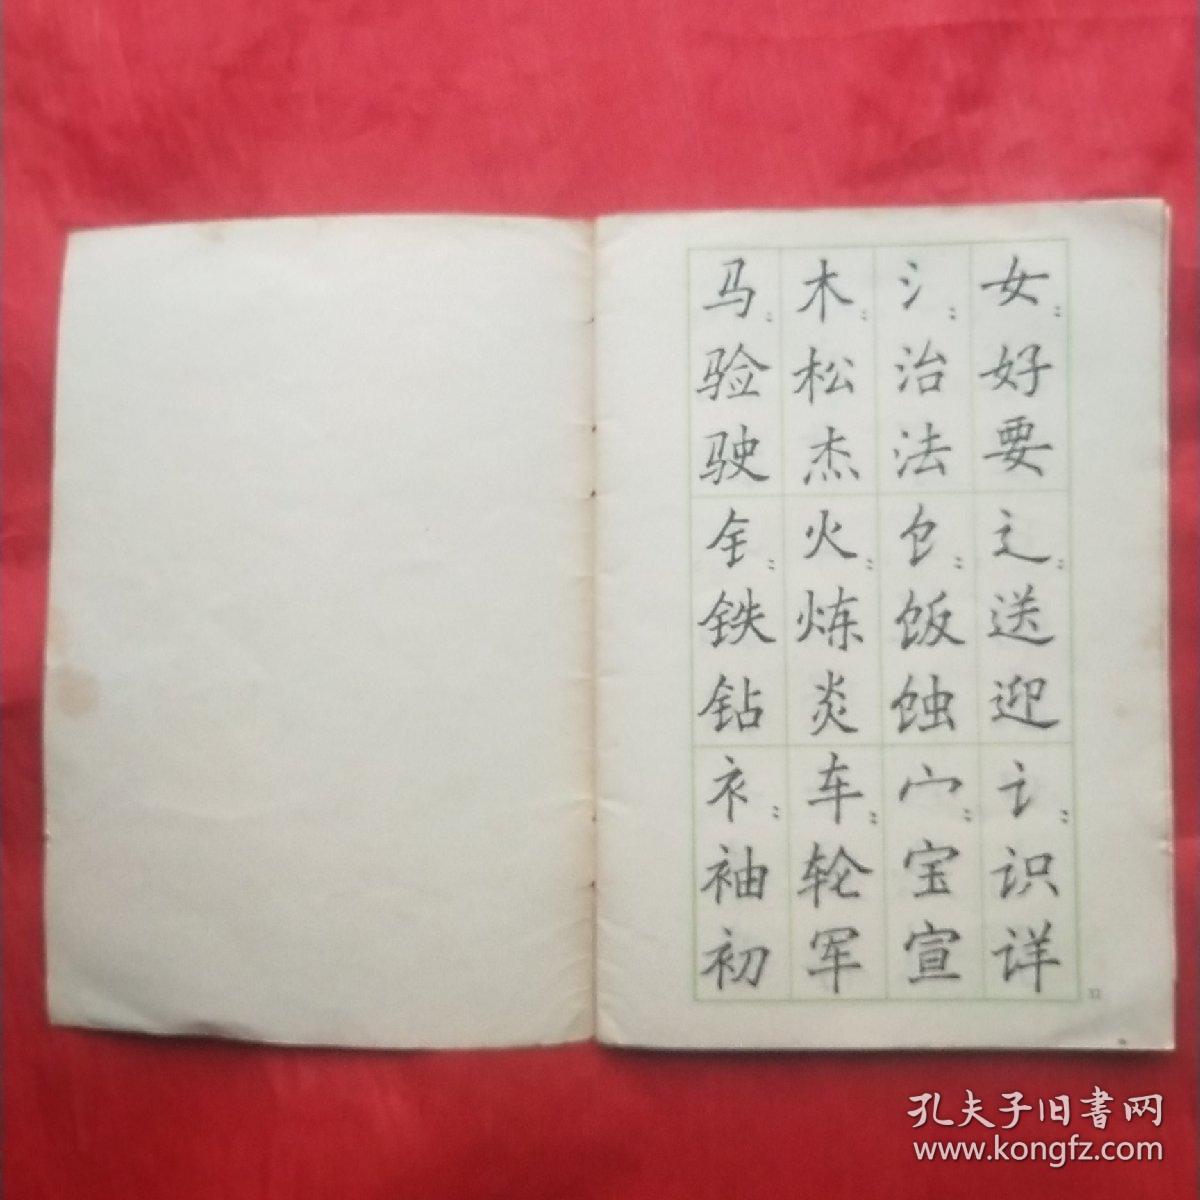 马 木 氵 女
验 松 治 好
驶 杰 法 要
钅 火 饣 辶
铁 炼 饭 送
钻 炎 蚀 迎
衤 车 宀 讠
袖 轮 宝 识
初 军 宣 详
孔夫子旧書网
www.kongfz.com